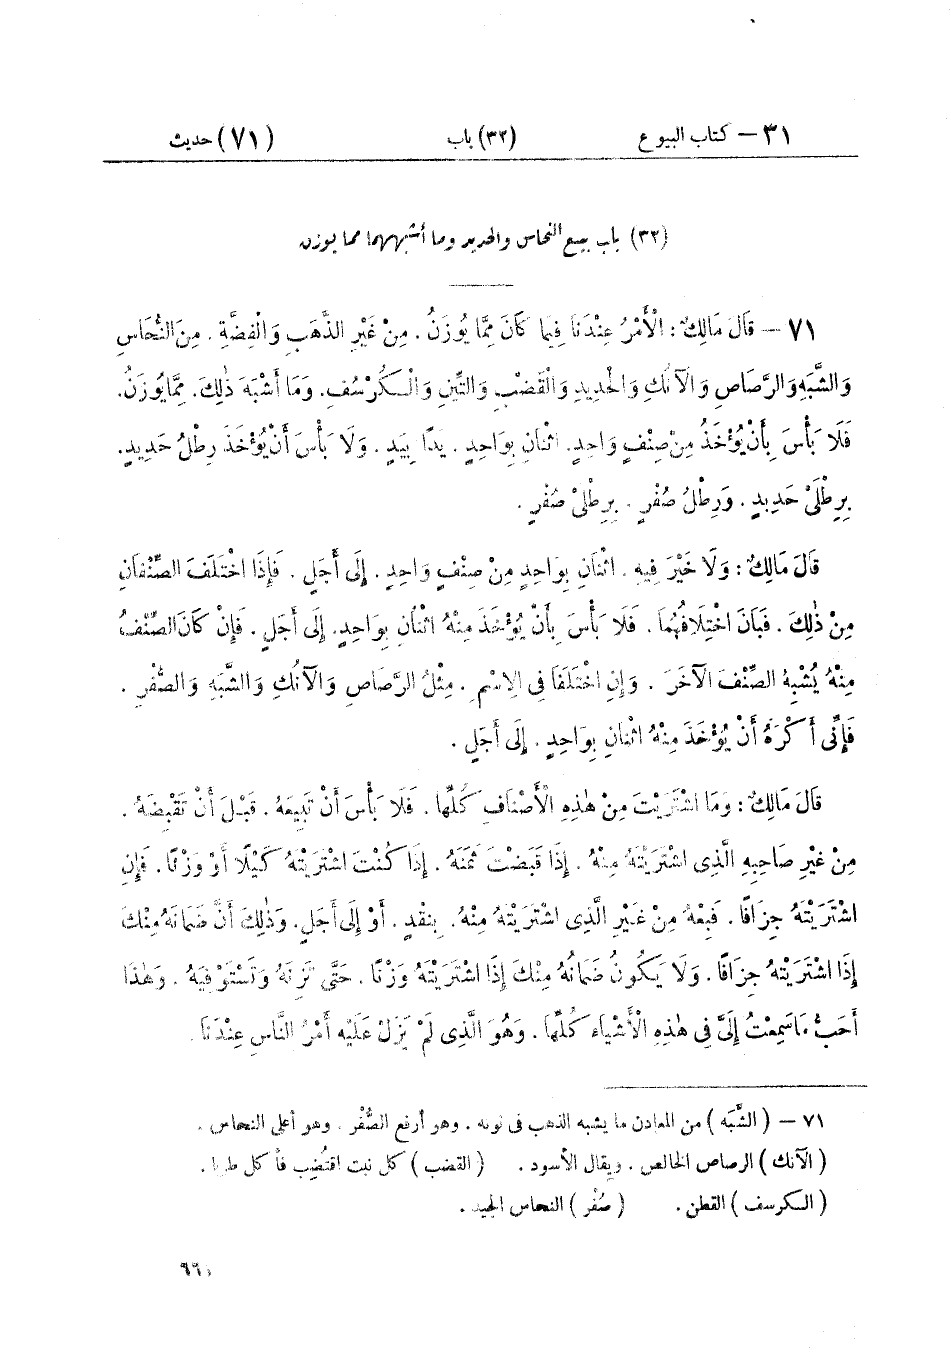 ٣١ – كتاب البيوع (٣٢) باب (٧١) حديث
(٣٢) باب بيع النحاس والحديد وما أشبههما مما يوزن
٧١ – قَالَ مَالِكٌ : الْأَمْرُ عِنْدَنَا فِيمَا كَانَ مِمَّا يُوزَنُ . مِنْ غَيْرِ الذَّهَبِ وَالْفِضَّةِ . مِنَ النُّحَاسِ
وَالشَّبَهِ وَالرَّصَاصِ وَالْآنُكِ وَالْحَدِيدِ وَالْقَضْبِ وَالتِّينِ وَالْكُرْسُفِ . وَمَا أَشْبَهَ ذٰلِكَ . مِمَّا يُوزَنُ .
فَلَا بَأْسَ بِأَنْ يُؤْخَذَ مِنْ صِنْفٍ وَاحِدٍ . اثْنَانِ بِوَاحِدٍ . يَدًا بِيَدٍ . وَلَا بَأْسَ أَنْ يُؤْخَذَ رِطْلُ حَدِيدٍ .
بِرِطْلَىْ حَدِيدٍ . وَرِطْلُ صُفْرٍ . بِرِطْلَىْ صُفْرٍ .
قَالَ مَالِكٌ : وَلَا خَيْرَ فِيهِ . اثْنَانِ بِوَاحِدٍ مِنْ صِنْفٍ وَاحِدٍ . إِلَى أَجَلٍ . فَإِذَا اخْتَلَفَ الصِّنْفَانِ
مِنْ ذٰلِكَ . فَبَانَ اخْتِلَافُهُمَا . فَلَا بَأْسَ بِأَنْ يُؤْخَذَ مِنْهُ اثْنَانِ بِوَاحِدٍ . إِلَى أَجَلٍ . فَإِنْ كَانَ الصِّنْفُ
مِنْهُ يُشْبِهُ الصِّنْفَ الْآخَرَ . وَإِنِ اخْتَلَفَا فِى الِاسْمِ . مِثْلُ الرَّصَاصِ وَالْآنُكِ وَالشَّبَهِ وَالصُّفْرِ .
فَإِنِّى أَكْرَهُ أَنْ يُؤْخَذَ مِنْهُ اثْنَانِ بِوَاحِدٍ . إِلَى أَجَلٍ .
قَالَ مَالِكٌ : وَمَا اشْتَرَيْتَ مِنْ هٰذِهِ الْأَصْنَافِ كُلِّهَا . فَلَا بَأْسَ أَنْ تَبِيعَهُ . قَبْلَ أَنْ تَقْبِضَهُ .
مِنْ غَيْرِ صَاحِبِهِ الَّذِى اشْتَرَيْتَهُ مِنْهُ . إِذَا قَبَضْتَ ثَمَنَهُ . إِذَا كُنْتَ اشْتَرَيْتَهُ كَيْلًا أَوْ وَزْنًا . فَإِنِ
اشْتَرَيْتَهُ جِزَافًا . فَبِعْهُ مِنْ غَيْرِ الَّذِى اشْتَرَيْتَهُ مِنْهُ . بِنَقْدٍ . أَوْ إِلَى أَجَلٍ . وَذٰلِكَ أَنَّ ضَمَانَهُ مِنْكَ
إِذَا اشْتَرَيْتَهُ جِزَافًا . وَلَا يَكُونُ ضَمَانُهُ مِنْكَ إِذَا اشْتَرَيْتَهُ وَزْنًا . حَتَّى تَزِنَهُ وَتَسْتَوْفِيَهُ . وَهٰذَا
أَحَبُّ مَا سَمِعْتُ إِلَىَّ فِى هٰذِهِ الْأَشْيَاءِ كُلِّهَا . وَهُوَ الَّذِى لَمْ يَزَلْ عَلَيْهِ أَمْرُ النَّاسِ عِنْدَنَا .
٧١ – ( الشَّبَه ) من المعادن ما يشبه الذهب فى لونه . وهو أرفع الصُّفْر . وهو أعلى النحاس .
( الآنك ) الرصاص الخالص . ويقال الأسود . ( القضب ) كل نبت اقتُضِب فأكل طريا .
( الكرسف ) القطن . ( صُفْر ) النحاس الجيد .
٦٦١